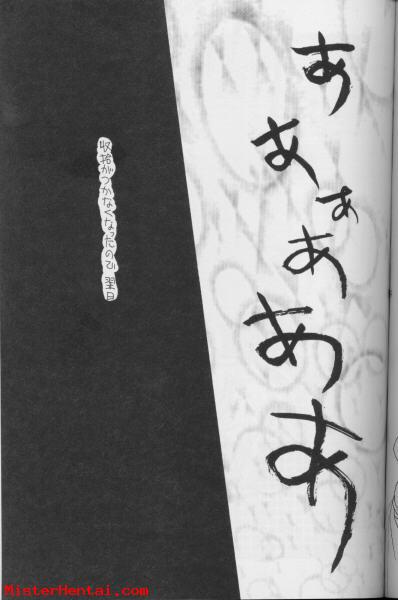 ああぁあああ
収拾がつかなくなったので翌日
MisterHentai.com